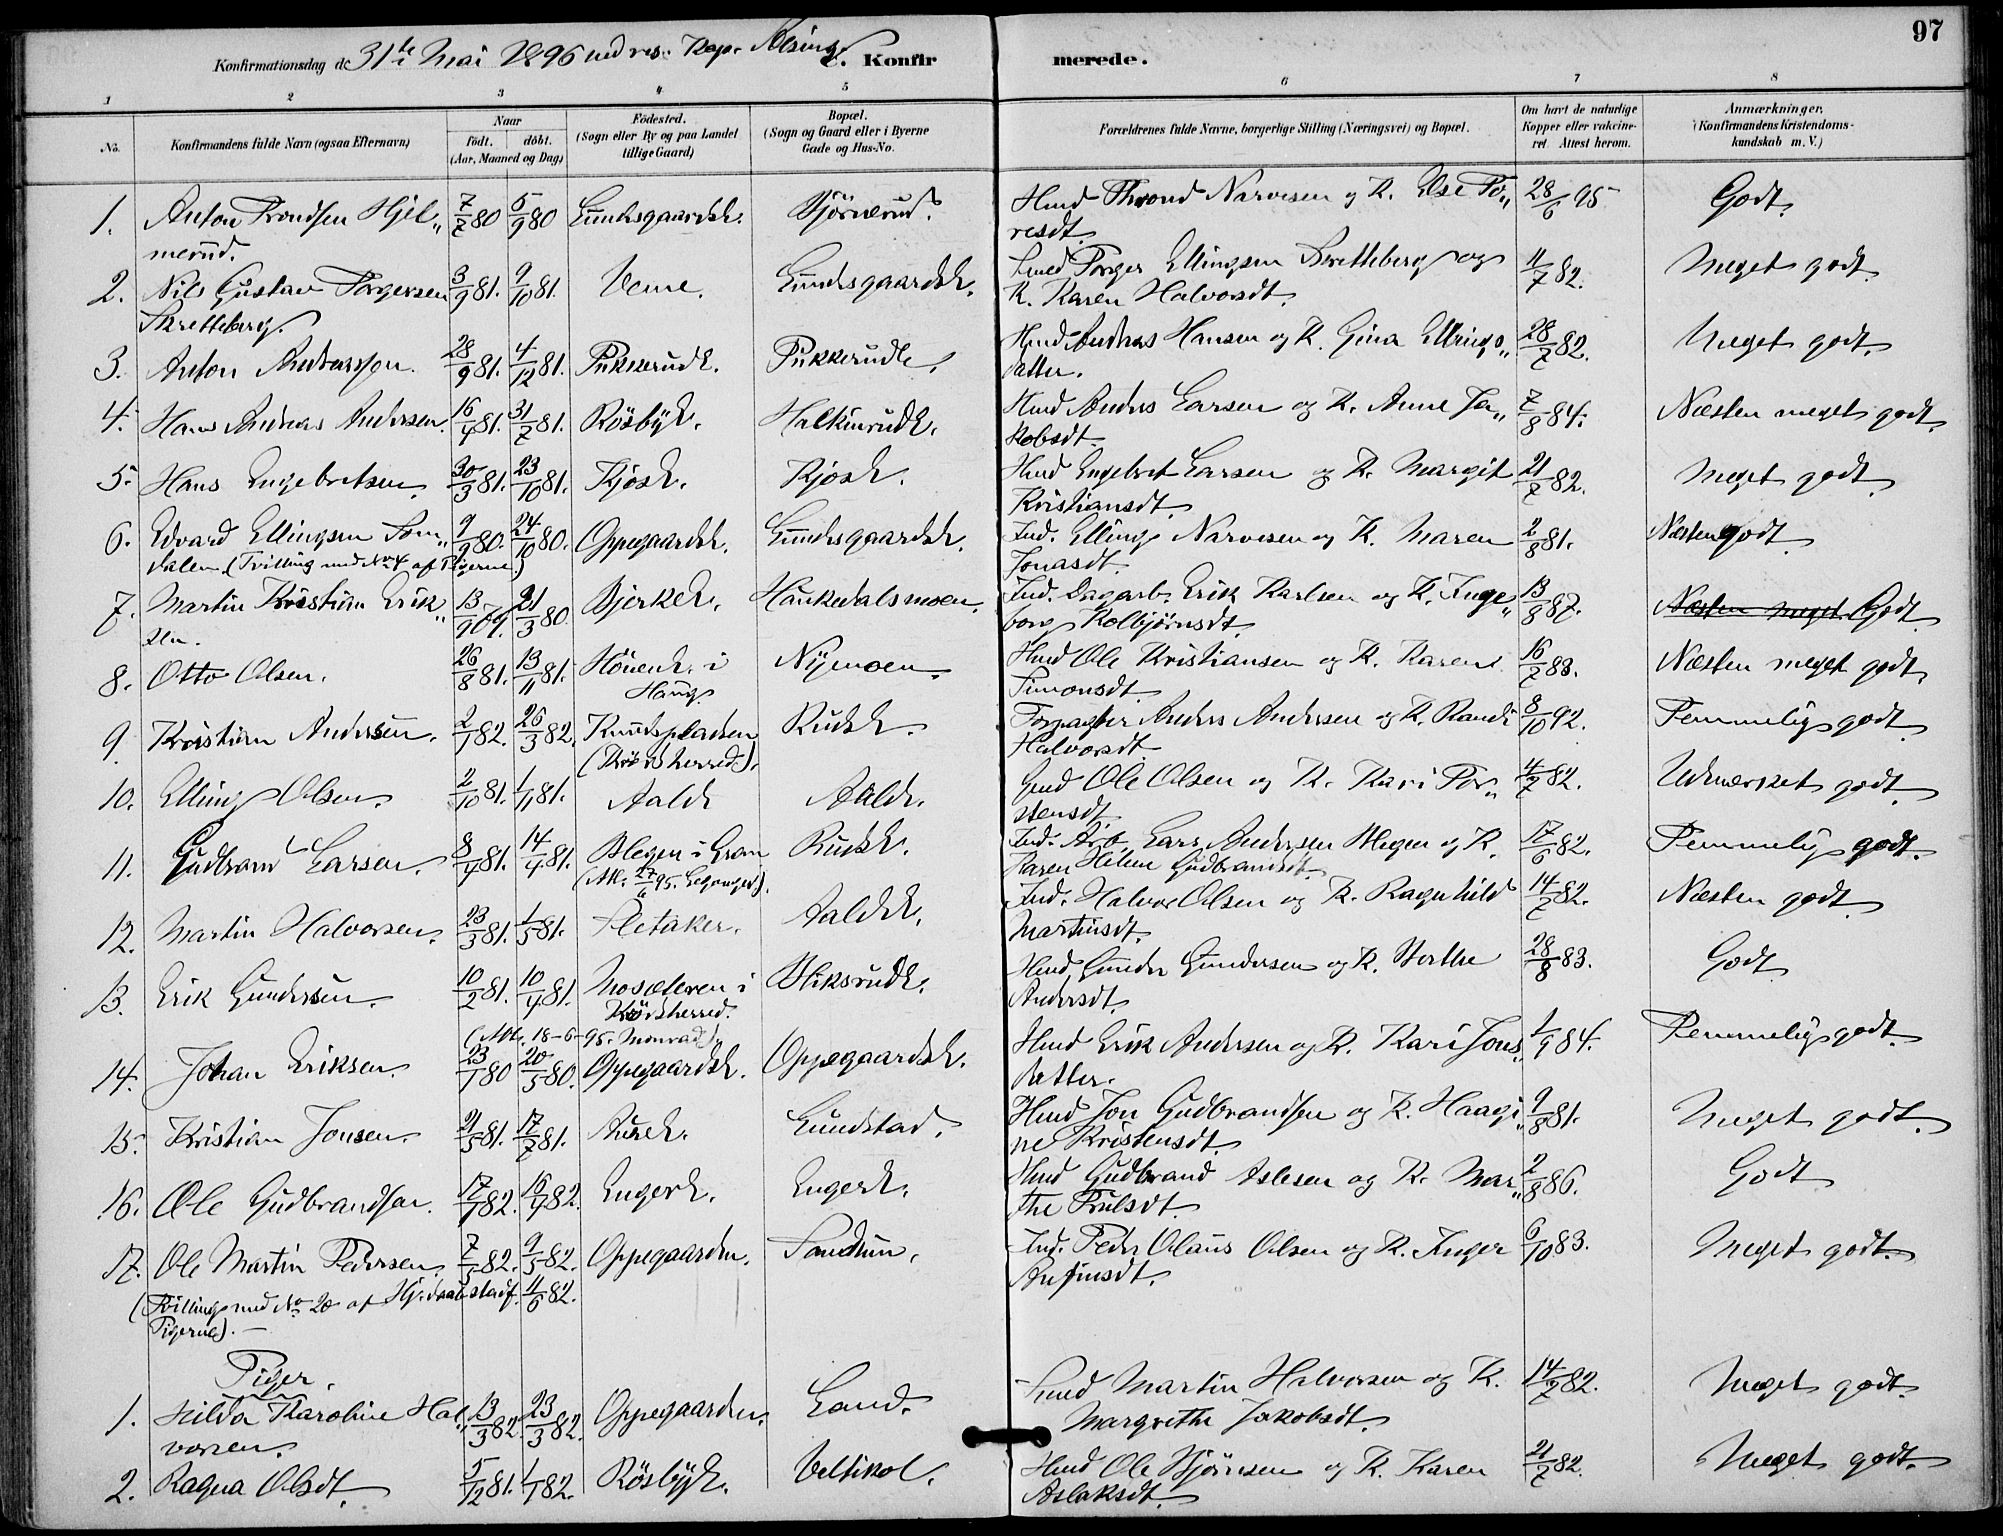 97
Konfirmationsdag d. 31te Mai 1896 ved res. Kap. Alsing. Konfirmerede.
1 2 3 4 5 6 7 8
No. Konfirmandens fulde Navn (ogsaa Efternavn) Naar født. døbt. (Aar, Maaned og Dag) Födested. (Sogn eller By og paa Landet tillige Gaard) Bopæl. (Sogn og Gaard eller i Byerne Gade og Hus-No. Forældrenes fulde Navne, borgerlige Stilling (Næringsvei) og Bopæl. Om havt de naturlige Kopper eller vakcineret. Attest herom. Anmærkninger. (Konfirmandens Kristendomskundskab m. V.)
1. Anton Trondsen Hjel„ 7/7 80 5/9 80 Lundsgaardsk. Bjørnerud. Hmd Thrond Narvesen og K. Else To„ 28/6 95 Godt.
merud. resdt.
2. Nils Gustav Torgersen 3/9 81. 9/10 81. Veme. Lundsgaardsk. Smed Torger Ellingsen Skretteberg og 11/7 82. Meget godt.
Skretteberg. K. Karen Halvorsdt.
3. Anton Andreassen. 28/9 81. 4/12 81. Pukkerudk. Pukkerudk. Hmd Andreas Hansen og K. Gina Ellings„ 28/7 82. Meget godt.
datter.
4. Hans Andreas Andersen. 16/4 81. 31/7 81. Rösbyk. Halkinrudk. Hmd Anders Larsen og K. Anne Ja„ 7/8 84. Næsten meget godt.
kobsdt.
5. Hans Engebretsen. 30/3 81. 23/10 81. Kjösk. Kjösk. Hmd Engebret Larsen og K. Margit 21/7 82. Meget godt.
Kristiansdt.
6. Edvard Ellingsen Søm„ 9/9 80. 24/10 80. Oppegaardsk. Lundsgaardsk. Ind. Elling Narvesen og K. Maren 2/8 81. Næsten godt.
dalen. (Tvilling med No 4 af Pigerne.) Jonasdt.
7. Martin Kristian Erik„ 13/9 79. 21/3 80 Bjerkek. Haukedalsmoen. Ind. Dagarb. Erik Karlsen og K. Inge„ 13/8 87. Næsten meget Godt.
sen. borg Kolbjørnsdt.
8. Otto Olsen. 26/8 81. 13/11 81. Hönenk. i Nymoen. Hmd Ole Kristiansen og K. Karen 16/7 83. Næsten meget godt.
Haug. Simonsdt.
9. Kristian Andersen. 2/1 82. 26/3 82. Knudspladsen Rudsk. Forpagter Anders Andersen og K. Randi 8/10 92. Temmelig godt.
(Krödsherred). Halvorsdt.
10. Elling Olsen. 2/10 81. 1/11 81. Aaldk Aaldk. Gmd Ole Olsen og K. Kari Tor„ 4/7 82. Udmærket godt.
stensdt.
11. Gudbrand Larsen. 8/4 81. 14/4 81. Blegen i Gran Rudsk. Ind. Arb. Lars Andersen Blegen og K. 17/6 82. Temmelig godt.
Karen Helene Gudbrandsdt.
12. Martin Halvorsen. 23/3 81. 1/5 81. Sletaker. Aaldsk. Ind. Halvor Olsen og K. Ragnhild 14/7 82. Næsten godt.
Martinsdt.
13. Erik Gundersen. 10/2 81. 10/4 81. Mosæteren i Bliksrudk. Hmd Gunder Gundersen og K. Berthe 28/8 83. Godt.
Krödsherred. Andersdt.
(Att. 18-6-95. Monrad).
14. Johan Eriksen. 23/1 80 20/5 80. Oppegaardsk. Oppegaardsk. Hmd Erik Andersen og K. Kari Jons„ 1/9 84. Temmelig godt.
datter.
15. Kristian Jonsen. 21/5 81. 17/7 81. Aurek. Lundstad. Hmd Jon Gudbrandsen og K. Haagi„ 9/8 81. Meget godt.
ne Kristensdt.
16. Ole Gudbrandsen. 17/1 82. 16/4 82. Engerk. Engerk. Hmd Gudbrand Aslesen og K. Mar„ 2/8 86. Godt.
the Trulsdt.
17. Ole Martin Pedersen 7/5 82. 9/5 82. Oppegaarden. Sandum. Ind. Peder Olaus Olsen og K. Inger 6/10 83. Meget godt.
(Tvilling med No 20 af Hj.daab stadf. 11/6 82. Anfinsdt.
Pigerne). —
Piger.
1. Hilda Karoline Hal„ 13/3 82. 23/3 82. Oppegaarden. Land. Smed Martin Halvorsen og K. 14/7 82. Meget godt.
vorsen. Margrethe Jakobsdt.
2. Ragna Olsdt. 5/12 81. 1/1 82. Rösbyk. Veltikol. Hmd Ole Bjørnsen og K. Karen 21/7 82. Meget godt.
Aslaksdt.